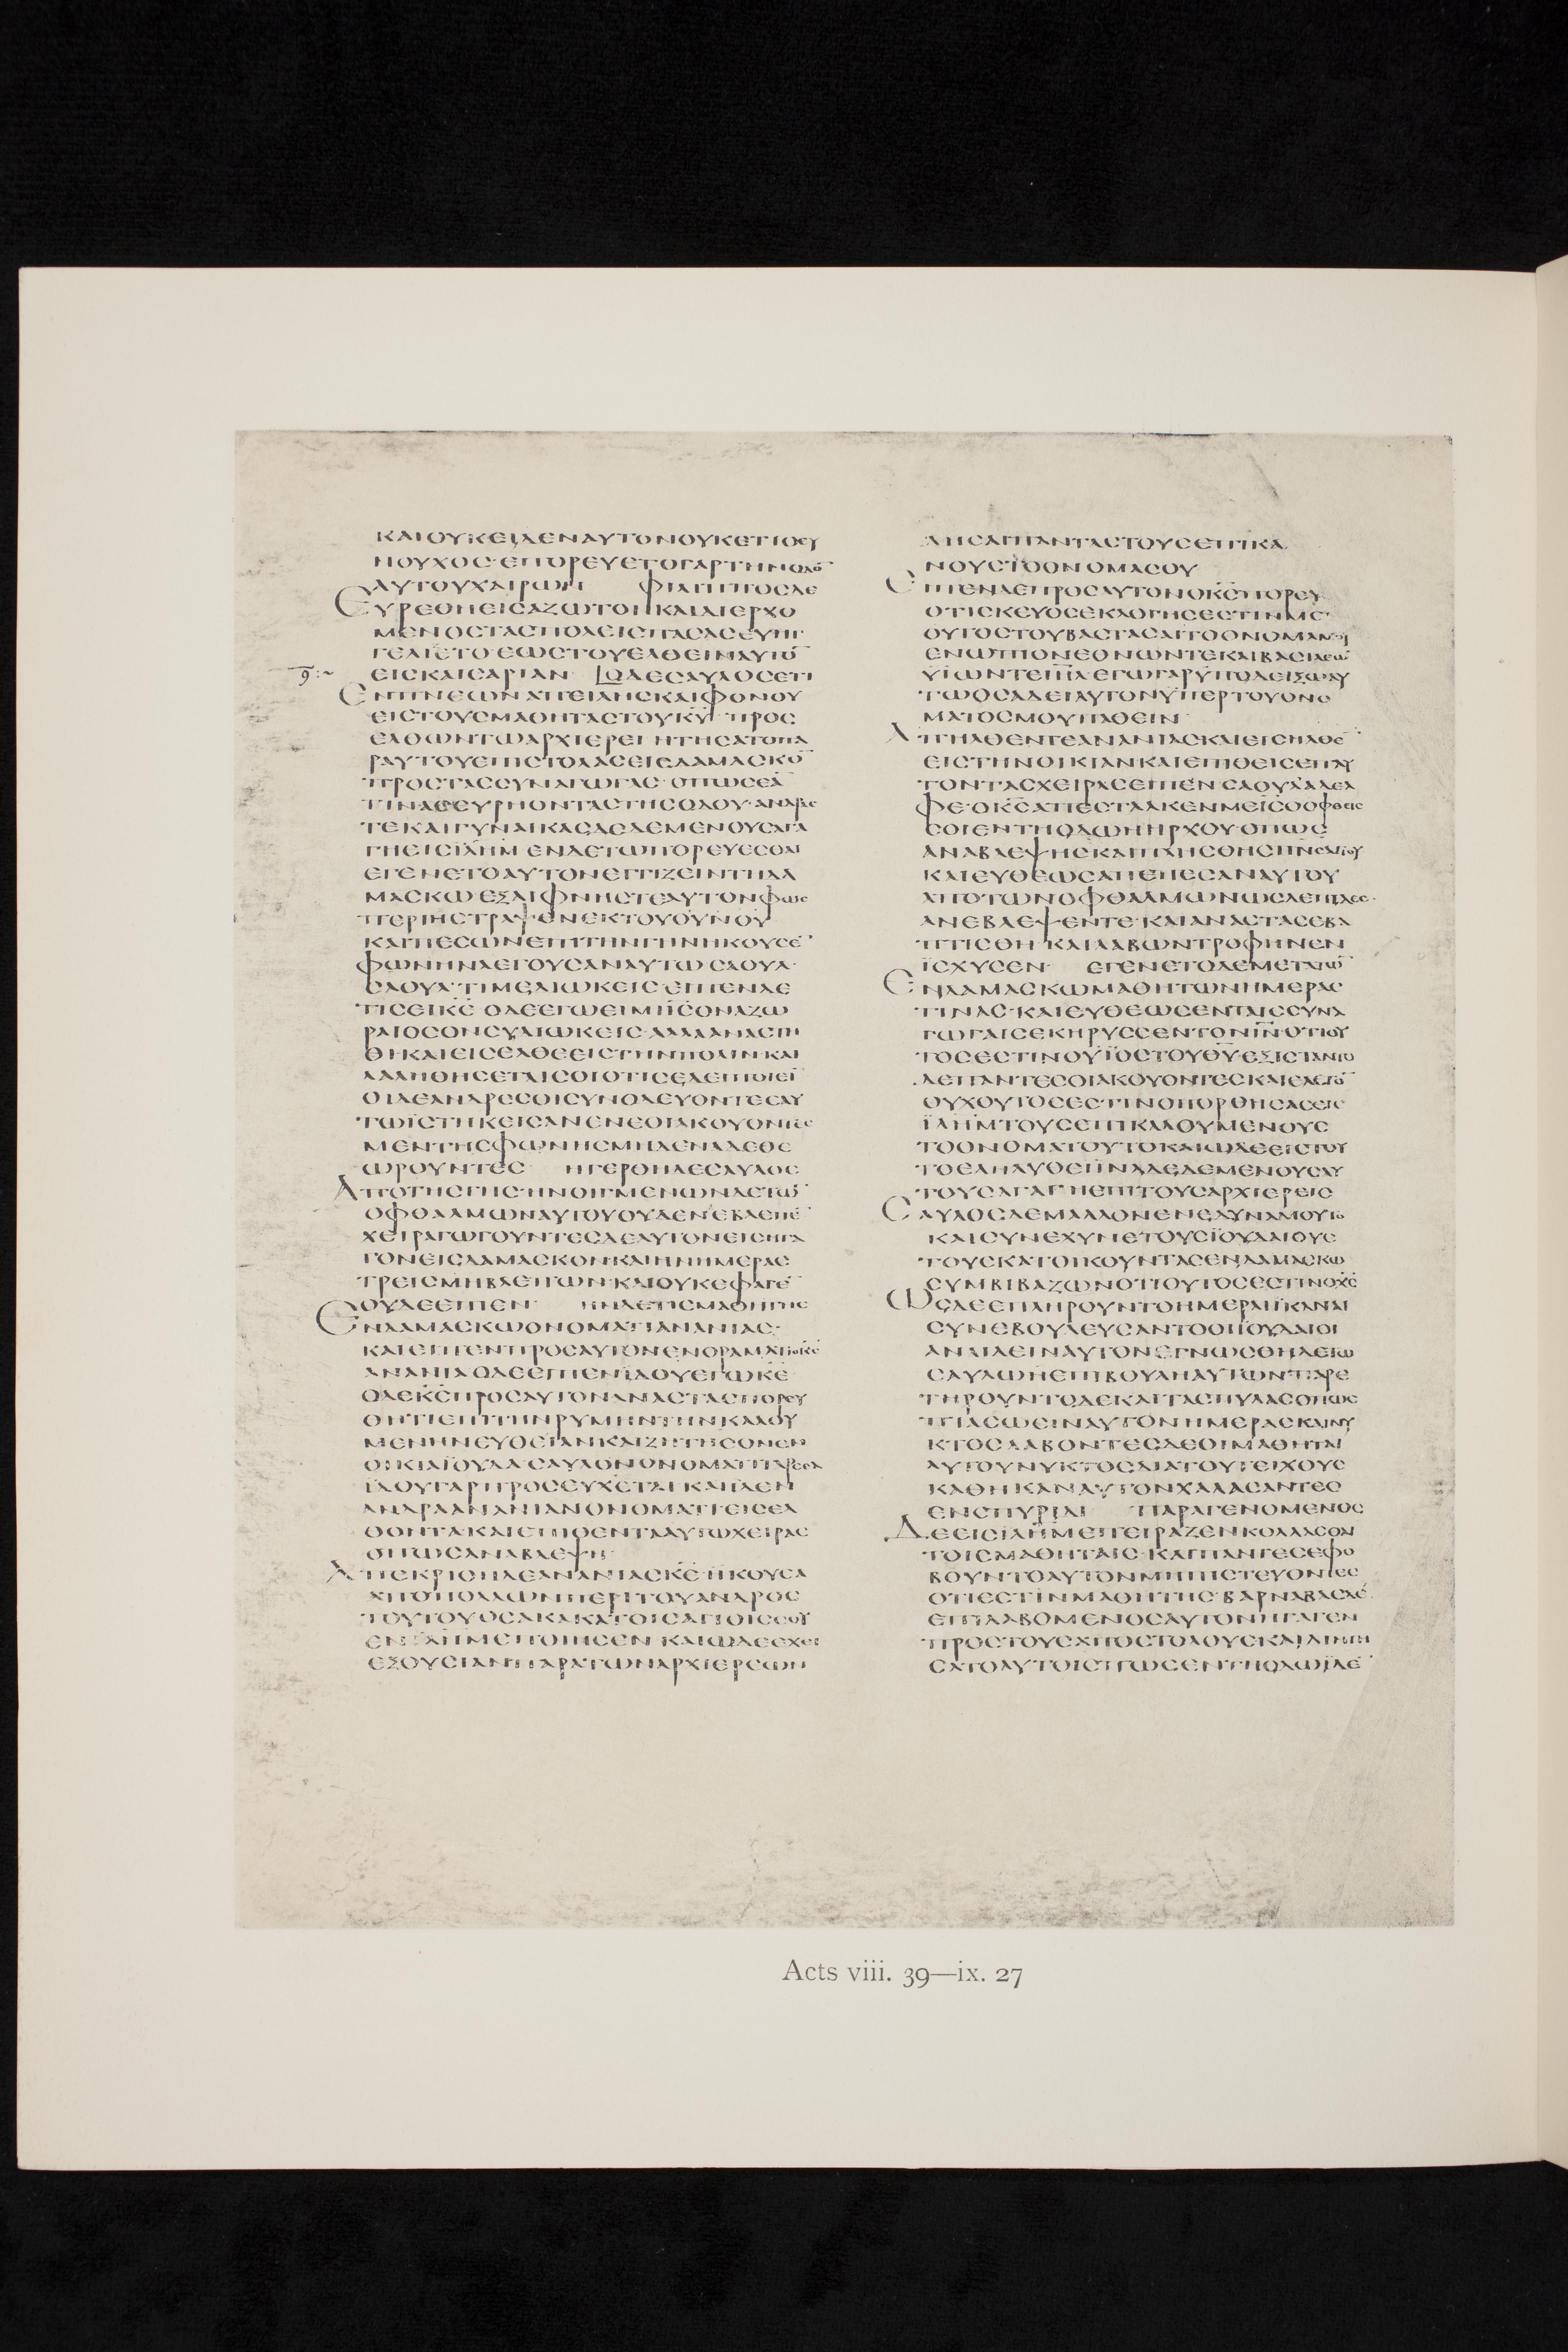 ΚΑΙΟΥΚΕΙΔΕΝΑΥΤΟΝΟΥΚΕΤΙΟΕΥ
ΝΟΥΧΟΣ·ΕΠΟΡΕΥΕΤΟΓΑΡΤΗΝΟΔΟ̅
ΑΥΤΟΥΧΑΙΡΩΝ ΦΙΛΙΠΠΟΣΔΕ
ΕΥΡΕΘΗΕΙΣΑΖΩΤΟΝ ΚΑΙΔΙΕΡΧΟ
ΜΕΝΟΣΤΑΣΠΟΛΕΙΣΠΑΣΑΣΕΥΗΓ
ΓΕΛΙΖΕΤΟ·ΕΩΣΤΟΥΕΛΘΕΙΝΑΥΤΟ̅
ΕΙΣΚΑΙΣΑΡΙΑΝ ΟΔΕΣΑΥΛΟΣΕΤΙ
ΕΝΠΝΕΩΝΑΠΕΙΛΗΣΚΑΙΦΟΝΟΥ
ΕΙΣΤΟΥΣΜΑΘΗΤΑΣΤΟΥΚΥ̅ ΠΡΟΣ
ΕΛΘΩΝΤΩΑΡΧΙΕΡΕΙ ΗΤΗΣΑΤΟΠΑ
ΡΑΥΤΟΥΕΠΙΣΤΟΛΑΣΕΙΣΔΑΜΑΣΚΟ̅
ΠΡΟΣΤΑΣΣΥΝΑΓΩΓΑΣ·ΟΠΩΣΕΑ̅
ΤΙΝΑΣΕΥΡΗΟΝΤΑΣΤΗΣΟΔΟΥ·ΑΝΔΡΑΣ
ΤΕΚΑΙΓΥΝΑΙΚΑΣΔΕΔΕΜΕΝΟΥΣΑΓΑ
ΓΗΕΙΣΙ̅Λ̅Η̅Μ̅ ΕΝΔΕΤΩΠΟΡΕΥΕΣΘΑΙ
ΕΓΕΝΕΤΟΑΥΤΟΝΕΓΓΙΖΕΙΝΤΗΔΑ
ΜΑΣΚΩΕΞΑΙΦΝΗΣΤΕΑΥΤΟΝΦΩΣ
ΠΕΡΙΗΣΤΡΑΨΕΝΕΚΤΟΥΟΥΝΟΥ
ΚΑΙΠΕΣΩΝΕΠΙΤΗΝΓΗΝΗΚΟΥΣΕ̅
ΦΩΝΗΝΛΕΓΟΥΣΑΝΑΥΤΩ ΣΑΟΥΛ·
ΣΑΟΥΛ·ΤΙΜΕΔΙΩΚΕΙΣ·ΕΙΠΕΝΔΕ
ΤΙΣΕΙΚΕ̅ ΟΔΕΕΓΩΕΙΜΙΙ̅Σ̅ΟΝΑΖΩ
ΡΑΙΟΣΟΝΣΥΔΙΩΚΕΙΣ·ΑΛΛΑΑΝΑΣΤΗ
ΘΙΚΑΙΕΙΣΕΛΘΕΕΙΣΤΗΝΠΟΛΙΝ·ΚΑΙ
ΛΑΛΗΘΗΣΕΤΑΙΣΟΙΟΤΙΣΕΔΕΙΠΟΙΕΙ̅
ΟΙΔΕΑΝΔΡΕΣΟΙΣΥΝΟΔΕΥΟΝΤΕΣΑΥ
ΤΩΙΣΤΗΚΕΙΣΑΝΕΝΕΟΙΑΚΟΥΟΝΤΕΣ
ΜΕΝΤΗΣΦΩΝΗΣΜΗΔΕΝΑΔΕΘΕ
ΩΡΟΥΝΤΕΣ ΗΓΕΡΘΗΔΕΣΑΥΛΟΣ
ΑΠΟΤΗΣΓΗΣ·ΗΝΟΙΓΜΕΝΩΝΔΕΤΩ̅
ΟΦΘΑΛΜΩΝΑΥΤΟΥΟΥΔΕΝΕΒΛΕΠΕ̅
ΧΕΙΡΑΓΩΓΟΥΝΤΕΣΔΕΑΥΤΟΝΕΙΣΗΓΑ
ΓΟΝΕΙΣΔΑΜΑΣΚΟΝ·ΚΑΙΗΝΗΜΕΡΑΣ
ΤΡΕΙΣΜΗΒΛΕΠΩΝ·ΚΑΙΟΥΚΕΦΑΓΕ̅
ΟΥΔΕΕΠΙΕΝ ΗΝΔΕΤΙΣΜΑΘΗΤΗΣ
ΕΝΔΑΜΑΣΚΩΟΝΟΜΑΤΙΑΝΑΝΙΑΣ·
ΚΑΙΕΙΠΕΝΠΡΟΣΑΥΤΟΝΕΝΟΡΑΜΑΤΙΟΚ̅Σ̅
ΑΝΑΝΙΑ ΟΔΕΕΙΠΕΝΙΔΟΥΕΓΩΚ̅Ε̅
ΟΔΕΚ̅Σ̅ΠΡΟΣΑΥΤΟΝΑΝΑΣΤΑΣΠΟΡΕΥ
ΘΗΤΙΕΠΙΤΗΝΡΥΜΗΝΤΗΝΚΑΛΟΥ
ΜΕΝΗΝΕΥΘΕΙΑΝΚΑΙΖΗΤΗΣΟΝΕΝ
ΟΙΚΙΑΙΟΥΔΑ·ΣΑΥΛΟΝΟΝΟΜΑΤΙΤΑΡΣΕΑ
ΙΔΟΥΓΑΡΠΡΟΣΕΥΧΕΤΑΙ ΚΑΙΙΔΕΝ
ΑΝΔΡΑΑΝΑΝΙΑΝΟΝΟΜΑΤΙΕΙΣΕΛ
ΘΟΝΤΑΚΑΙΕΠΙΘΕΝΤΑΑΥΤΩΧΕΙΡΑΣ
ΟΠΩΣΑΝΑΒΛΕΨΗ
ΑΠΕΚΡΙΘΗΔΕΑΝΑΝΙΑΣΚ̅Ε̅·ΗΚΟΥΣΑ
ΑΠΟΠΟΛΛΩΝΠΕΡΙΤΟΥΑΝΔΡΟΣ
ΤΟΥΤΟΥΟΣΑΚΑΚΑΤΟΙΣΑΓΙΟΙΣΣΟΥ
ΕΝΙ̅Λ̅Η̅Μ̅ΕΠΟΙΗΣΕΝ ΚΑΙΩΔΕΕΧΕΙ
ΕΞΟΥΣΙΑΝΠΑΡΑΤΩΝΑΡΧΙΕΡΕΩΝ
ΔΗΣΑΙΠΑΝΤΑΣΤΟΥΣΕΠΙΚΑ
ΝΟΥΣΤΟΟΝΟΜΑΣΟΥ
ΕΙΠΕΝΔΕΠΡΟΣΑΥΤΟΝΟΚ̅Σ̅ΠΟΡΕΥ
ΟΤΙΣΚΕΥΟΣΕΚΛΟΓΗΣΕΣΤΙΝΜΟΙ
ΟΥΤΟΣΤΟΥΒΑΣΤΑΣΑΙΤΟΟΝΟΜΑΜΟΥ
ΕΝΩΠΙΟΝΕΘΝΩΝΤΕΚΑΙΒΑΣΙΛΕΩ̅
ΥΙΩΝΤΕΙ̅Η̅Λ̅·ΕΓΩΓΑΡΥΠΟΔΕΙΞΩΑΥ
ΤΩΟΣΑΔΕΙΑΥΤΟΝΥΠΕΡΤΟΥΟΝΟ
ΜΑΤΟΣΜΟΥΠΑΘΕΙΝ
ΑΠΗΛΘΕΝΤΕΑΝΑΝΙΑΣΚΑΙΕΙΣΗΛΘΕ̅
ΕΙΣΤΗΝΟΙΚΙΑΝΚΑΙΕΠΙΘΕΙΣΕΠΑΥ
ΤΟΝΤΑΣΧΕΙΡΑΣΕΙΠΕΝ ΣΑΟΥΛΑΔΕΛ
ΦΕ·ΟΚ̅Σ̅ΑΠΕΣΤΑΛΚΕΝΜΕΙ̅Σ̅ΟΟΦΘΕΙΣ
ΣΟΙΕΝΤΗΟΔΩΗΗΡΧΟΥ·ΟΠΩΣ
ΑΝΑΒΛΕΨΗΣΚΑΙΠΛΗΣΘΗΣΠ̅Ν̅Σ̅ΑΓΙΟΥ
ΚΑΙΕΥΘΕΩΣΑΠΕΠΕΣΑΝΑΥΤΟΥ
ΑΠΟΤΩΝΟΦΘΑΛΜΩΝΩΣΛΕΠΙΔΕΣ·
ΑΝΕΒΛΕΨΕΝΤΕ·ΚΑΙΑΝΑΣΤΑΣΕΒΑ
ΠΤΙΣΘΗ ΚΑΙΛΑΒΩΝΤΡΟΦΗΝΕΝ
ΙΣΧΥΣΕΝ· ΕΓΕΝΕΤΟΔΕΜΕΤΑΤΩ̅
ΕΝΔΑΜΑΣΚΩΜΑΘΗΤΩΝΗΜΕΡΑΣ
ΤΙΝΑΣ·ΚΑΙΕΥΘΕΩΣΕΝΤΑΙΣΣΥΝΑ
ΓΩΓΑΙΣΕΚΗΡΥΣΣΕΝΤΟΝΙ̅Ν̅·ΟΤΙΟΥ
ΤΟΣΕΣΤΙΝΟΥΙΟΣΤΟΥΘ̅Υ̅ΕΞΙΣΤΑΝΤΟ
ΔΕΠΑΝΤΕΣΟΙΑΚΟΥΟΝΤΕΣΚΑΙΕΛΕΓΟ̅
ΟΥΧΟΥΤΟΣΕΣΤΙΝΟΠΟΡΘΗΣΑΣΕΙΣ
Ι̅Λ̅Η̅Μ̅ΤΟΥΣΕΠΙΚΑΛΟΥΜΕΝΟΥΣ
ΤΟΟΝΟΜΑΤΟΥΤΟΚΑΙΩΔΕΕΙΣΤΟΥ
ΤΟΕΛΗΛΥΘΕΙΙΝΑΔΕΔΕΜΕΝΟΥΣΑΥ
ΤΟΥΣΑΓΑΓΗΕΠΙΤΟΥΣΑΡΧΙΕΡΕΙΣ
ΣΑΥΛΟΣΔΕΜΑΛΛΟΝΕΝΕΔΥΝΑΜΟΥΤΟ
ΚΑΙΣΥΝΕΧΥΝΕΤΟΥΣΙΟΥΔΑΙΟΥΣ
ΤΟΥΣΚΑΤΟΙΚΟΥΝΤΑΣΕΝΔΑΜΑΣΚΩ
ΣΥΜΒΙΒΑΖΩΝΟΤΙΟΥΤΟΣΕΣΤΙΝΟΧ̅Σ̅
ΩΣΔΕΕΠΛΗΡΟΥΝΤΟΗΜΕΡΑΙΙΚΑΝΑΙ
ΣΥΝΕΒΟΥΛΕΥΣΑΝΤΟΟΙΙΟΥΔΑΙΟΙ
ΑΝΑΙΛΕΙΝΑΥΤΟΝΕΓΝΩΣΘΗΔΕΤΩ
ΣΑΥΛΩΗΕΠΙΒΟΥΛΗΑΥΤΩΝ·ΠΑΡΕ
ΤΗΡΟΥΝΤΟΔΕΚΑΙΤΑΣΠΥΛΑΣΟΠΩΣ
ΠΙΑΣΩΣΙΝΑΥΤΟΝΗΜΕΡΑΣΚΑΙΝΥ
ΚΤΟΣΛΑΒΟΝΤΕΣΔΕΟΙΜΑΘΗΤΑΙ
ΑΥΤΟΥΝΥΚΤΟΣΔΙΑΤΟΥΤΕΙΧΟΥΣ
ΚΑΘΗΚΑΝΑΥΤΟΝΧΑΛΑΣΑΝΤΕΣ
ΕΝΣΠΥΡΙΔΙ ΠΑΡΑΓΕΝΟΜΕΝΟΣ
ΔΕΕΙΣΙ̅Λ̅Η̅Μ̅ΕΠΕΙΡΑΖΕΝΚΟΛΛΑΣΘΑΙ
ΤΟΙΣΜΑΘΗΤΑΙΣ·ΚΑΙΠΑΝΤΕΣΕΦΟ
ΒΟΥΝΤΟΑΥΤΟΝΜΗΠΙΣΤΕΥΟΝΤΕΣ
ΟΤΙΕΣΤΙΝΜΑΘΗΤΗΣ·ΒΑΡΝΑΒΑΣΔΕ
ΕΠΙΛΑΒΟΜΕΝΟΣΑΥΤΟΝΗΓΑΓΕΝ
ΠΡΟΣΤΟΥΣΑΠΟΣΤΟΛΟΥΣΚΑΙΔΙΗΓΗ
ΣΑΤΟΑΥΤΟΙΣΠΩΣΕΝΤΗΟΔΩΙΔΕ̅
Acts viii. 39—ix. 27